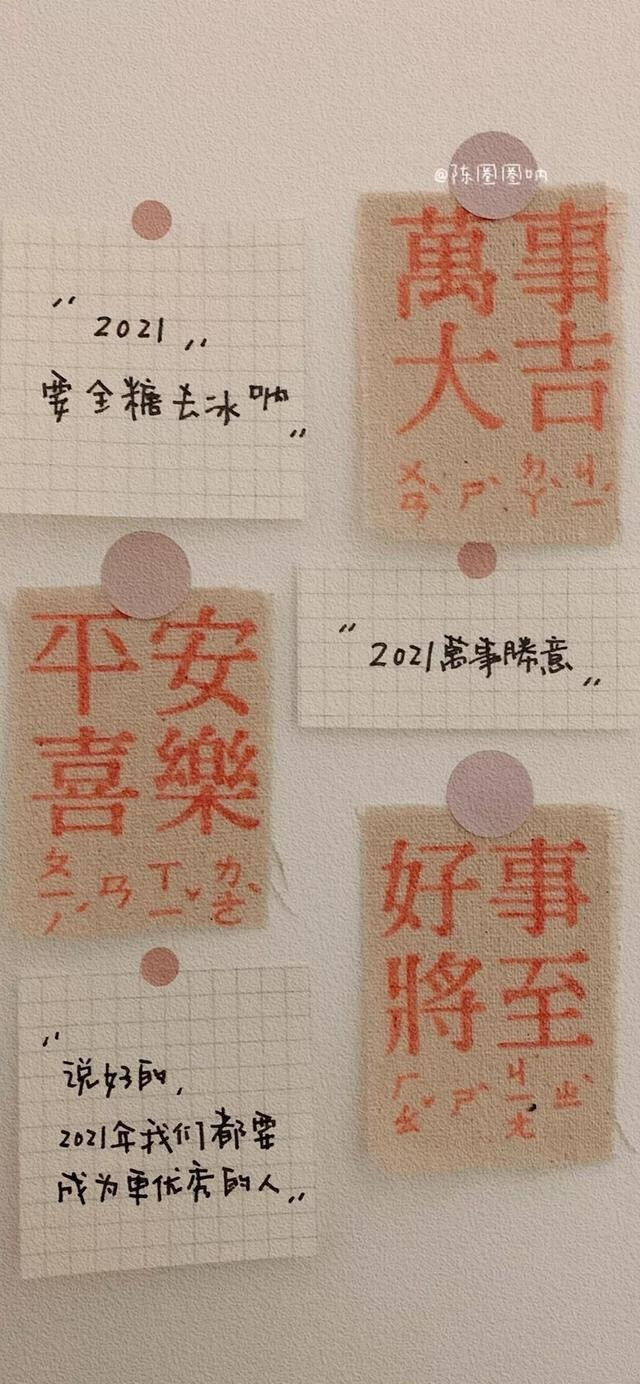 @陈圈圈呐
" 2021 "
要全糖去冰呐"
萬事
大吉
ㄨㄢˋ ㄕˋ ㄉㄚˋ ㄐㄧˊ
平安
喜樂
ㄆㄧㄥˊ ㄢ ㄒㄧˇ ㄌㄜˋ
"2021萬事勝意"
好事
將至
ㄏㄠˇ ㄕˋ ㄐㄧㄤ ㄓˋ
"
说好的,
2021年我们都要
成为更优秀的人"